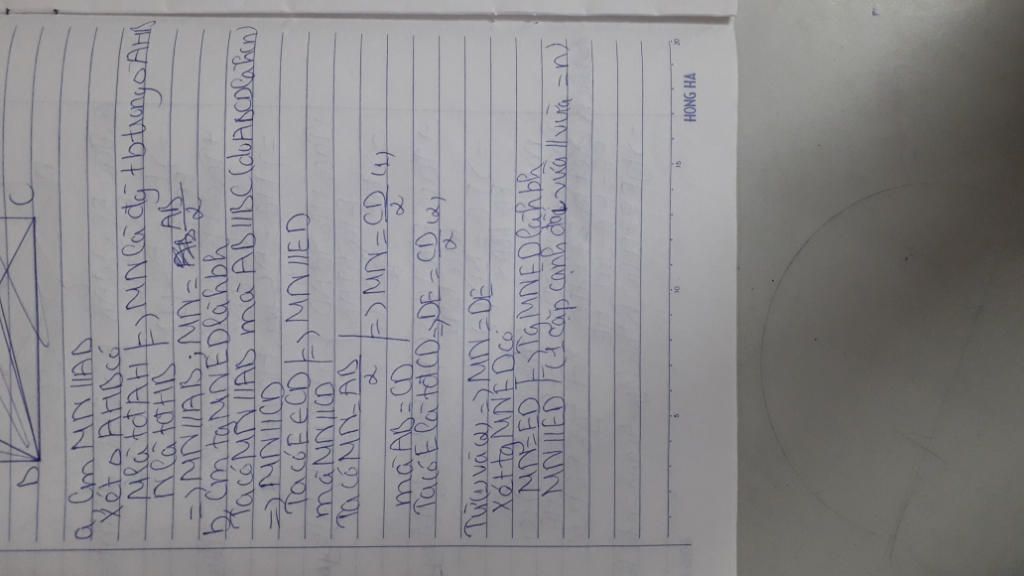 D C
a, Cm MN // AD
Xét △ AHB có
M là tđ AH |=> MN là đg tb trung △ AHB
N là tđ HB
=> MN // AB ; MN = AB/2
b, Cm tg MNED là hbh
Ta có MN // AB mà AB // (do ABCD là hcn)
=> MN // CD
Ta có E ∈ CD |=> MN // ED
mà MN // CD
Ta có MN = AB/2 |=> MN = CD/2 (1)
mà AB = CD
Ta có E là tđ CD => DE = CD/2 (2)
Từ (1) và (2) => MN = DE
Xét tg MNED có
MN = ED |=> Tg MNED là hbh
MN // ED (1 cặp cạnh đối vừa // vừa =n)
HONG HA
5 10 15 20